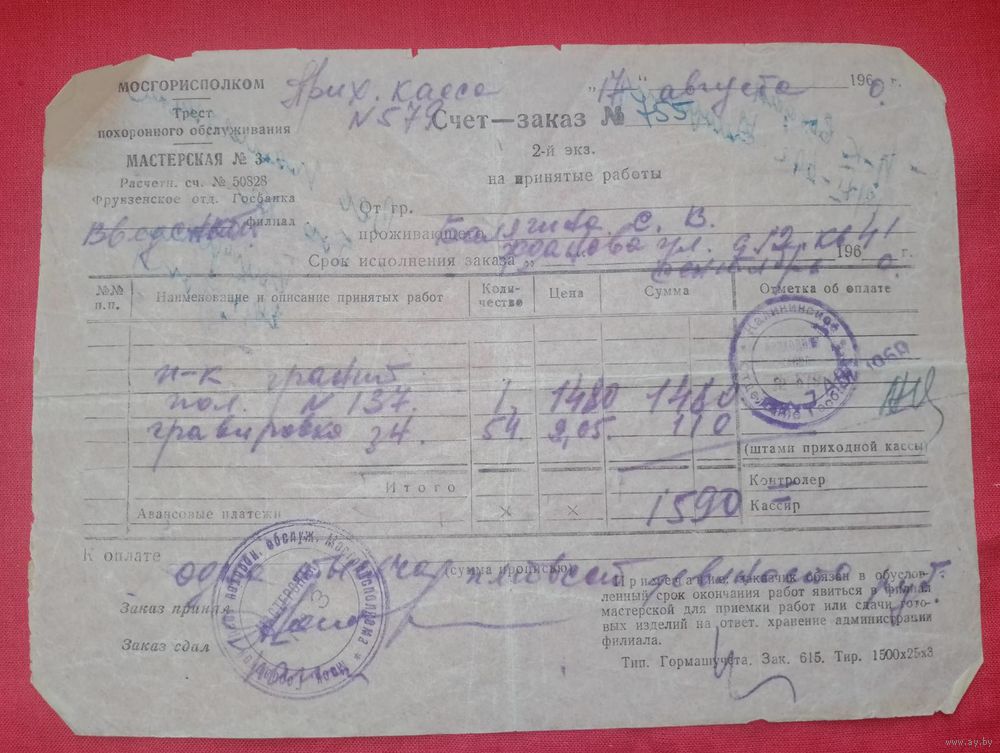 МОСГОРИСПОЛКОМ
Трест
похоронного обслуживания
МАСТЕРСКАЯ № 3
Расчетн. сч. № 50828
Фрунзенское отд. Госбанка
филиал
Прих. касса
N 579
„17" августа 1960 г.
Счет—заказ № 755
2-й экз.
на принятые работы
От гр.
проживающего С. В.
ул. д 12 кв 41
Срок исполнения заказа „ сентября 1960 г.
№№ п.п. Наименование и описание принятых работ Количество Цена Сумма Отметка об оплате
п-к гранит.
пол. N 137. 1 1480 1480
гравировка зн. 54 2,05. 110
(штамп приходной кассы)
Итого
Контролер
Авансовые платежи × × 1590
Кассир
К оплате одна тысяча пятьсот девяносто руб.
(сумма прописью)
Заказ принял
Заказ сдал
Примечание. Заказчик обязан в обуслов-
ленный срок окончания работ явиться в филиал
мастерской для приемки работ или сдачи гото-
вых изделий на ответ. хранение администрации
филиала.
Тип. Гормашучета. Зак. 615. Тир. 1500х25х3
www.ay.by